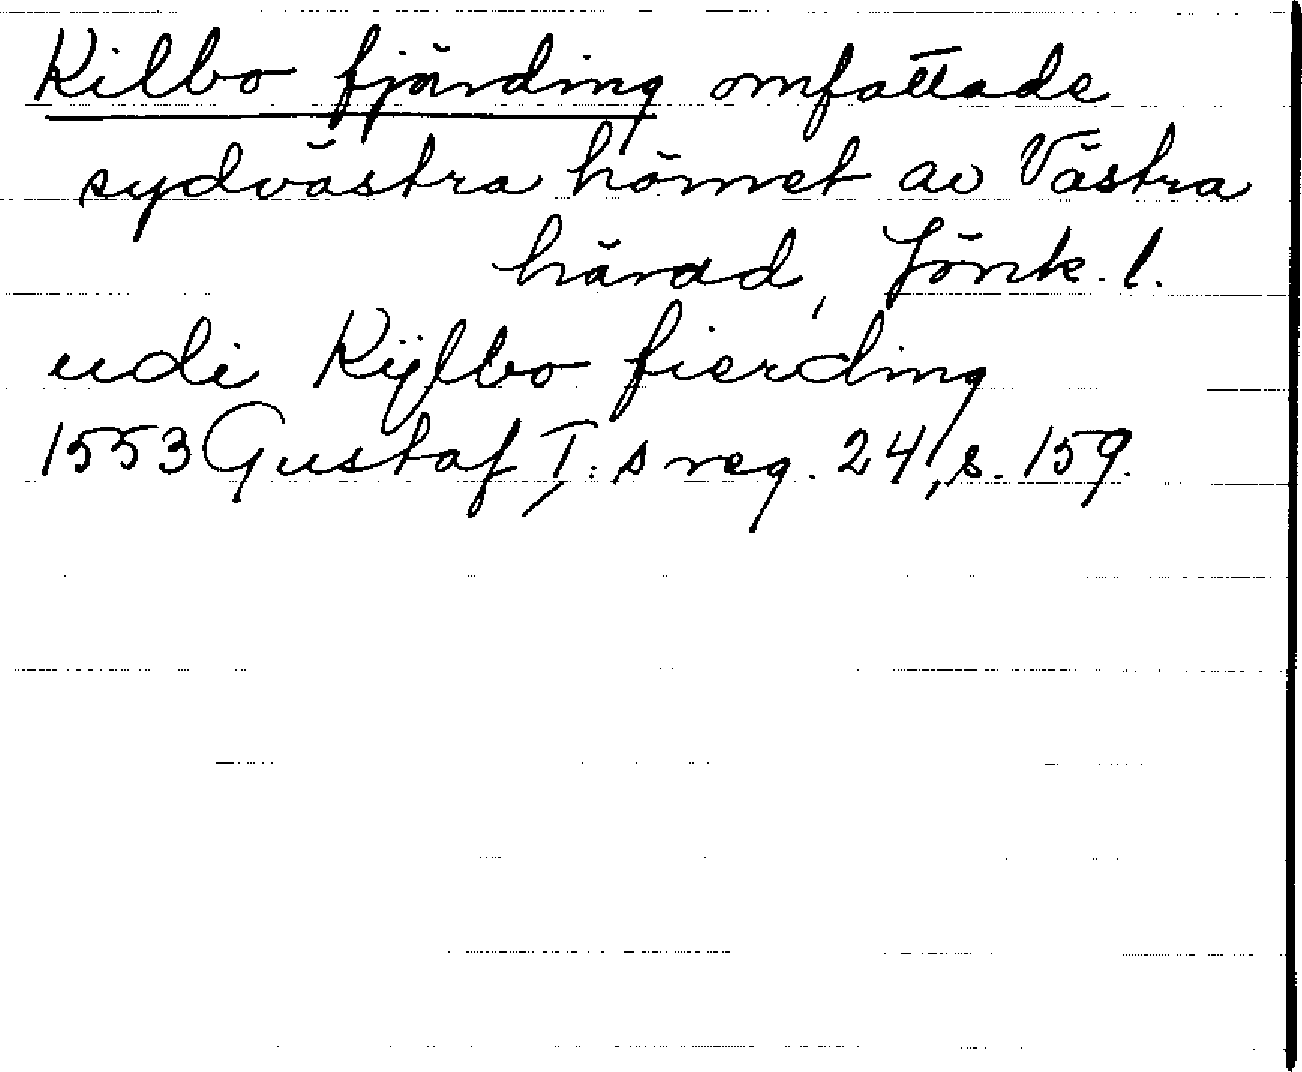 Kilbo fjärding omfattade
sydvästra hörnet av Västra
härad, Jönk. l.
udi Kÿlbo fierding
1553 Gustaf I:s reg. 24, s. 159.